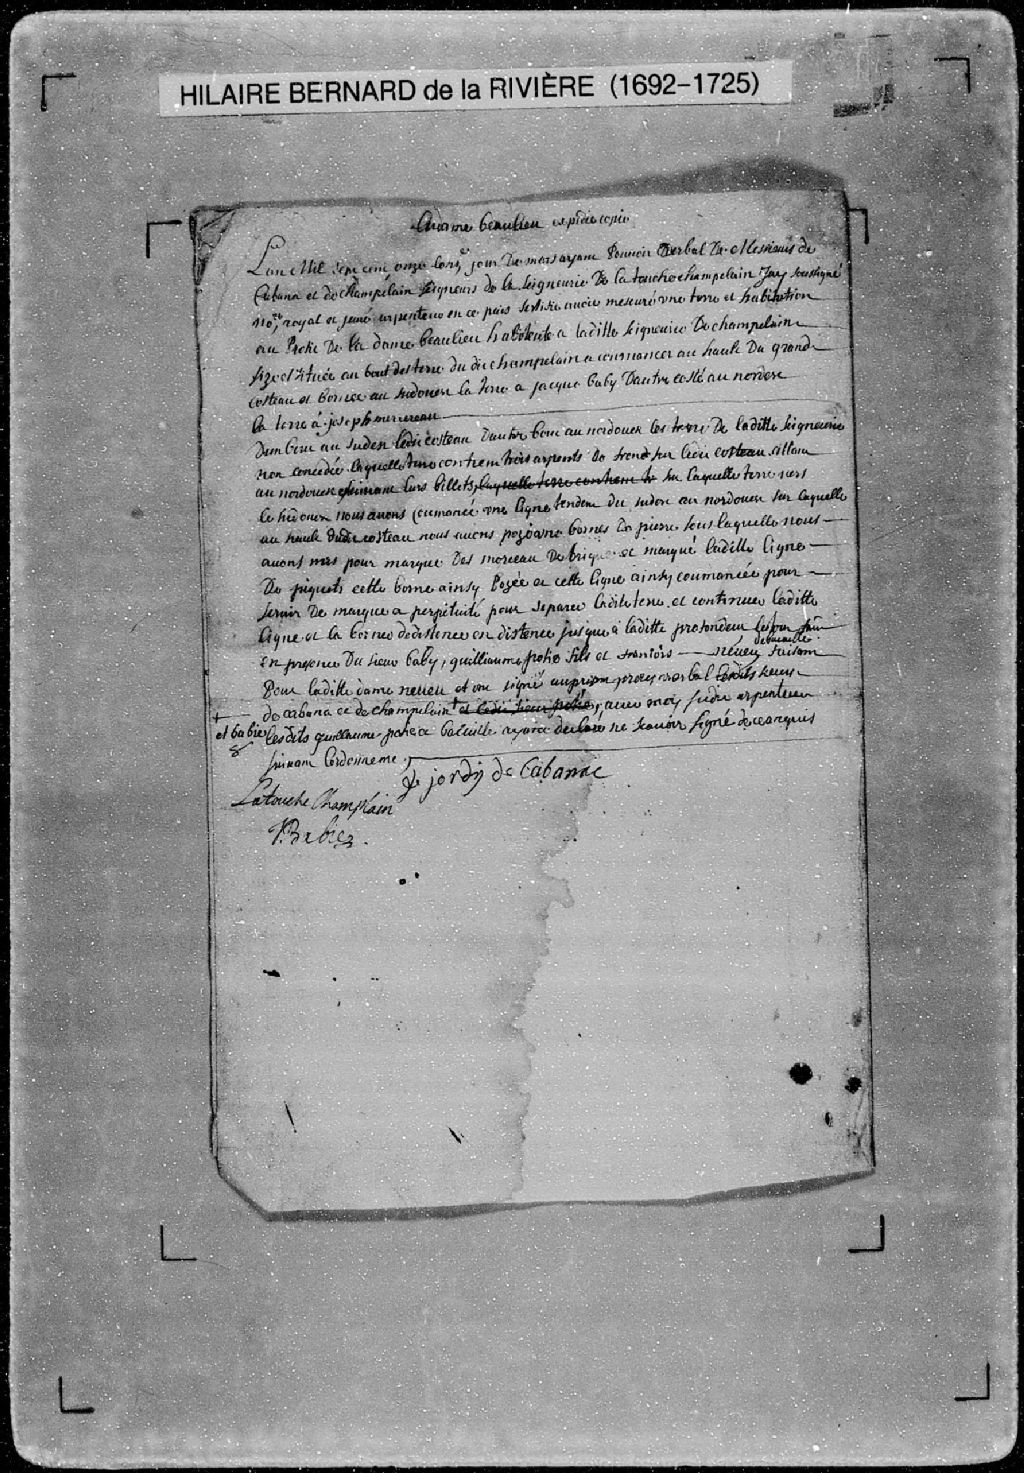 HILAIRE BERNARD de la RIVIÈRE (1692–1725)
beaulieu expédié copie
Lan Mil sept cent onze jour De mars ayant Pouvoir Verbal De Messieurs de
Cabana et de champelain seigneurs de la seigneurie De la touche champelain Jay soussigné
no.re royal et juré arpenteur en ce païs mesuré une terre et habitation
au De la dame beaulieu habitente a laditte seigneurie De champelain
size et située au bout des terre du dit champelain a commancer au haut Du grand
costeau et bornée au sudouest la terre a jacque baby Dautre costé au nordest
la terre à joseph
Dun bout au sudest ledit costeau Dautre bout au nordouest les terre De laditte seigneurie
non concedée laquelle terre contient trois arpents De front sur ledit costeau allant
au nordouest suivant leurs billets, laquelle terre contient sur laquelle terre vers
le sudouest nous avons coumancé une ligne tendent du sudest au nordouest sur laquelle
au haut dudit costeau nous avons pozé une bornes De pierre sous laquelle nous
avons mis pour marque Des morceau De brique et marqué laditte ligne
De piquets cette borne ainsy Pozée et cette ligne ainsy coumancée pour
servir De marque a perpétuité pour séparer ladite terre et continuer laditte
ligne et la borner de distence en distence jusque à laditte profondeur
En presence Du sieur baby, guilliaume potié fils et neveu faisant
Pour laditte dame neveu et ont signé procez verbal lesdits sieurs
de cabana et de champelain et ledit sieur potié, avec moy sudit arpenteur
et babie lesdits guillaume potié et ne scavoir signé de ce enquis
suivant lordonnence
De jordy de Cabanac
Latouche Champlain
Babie